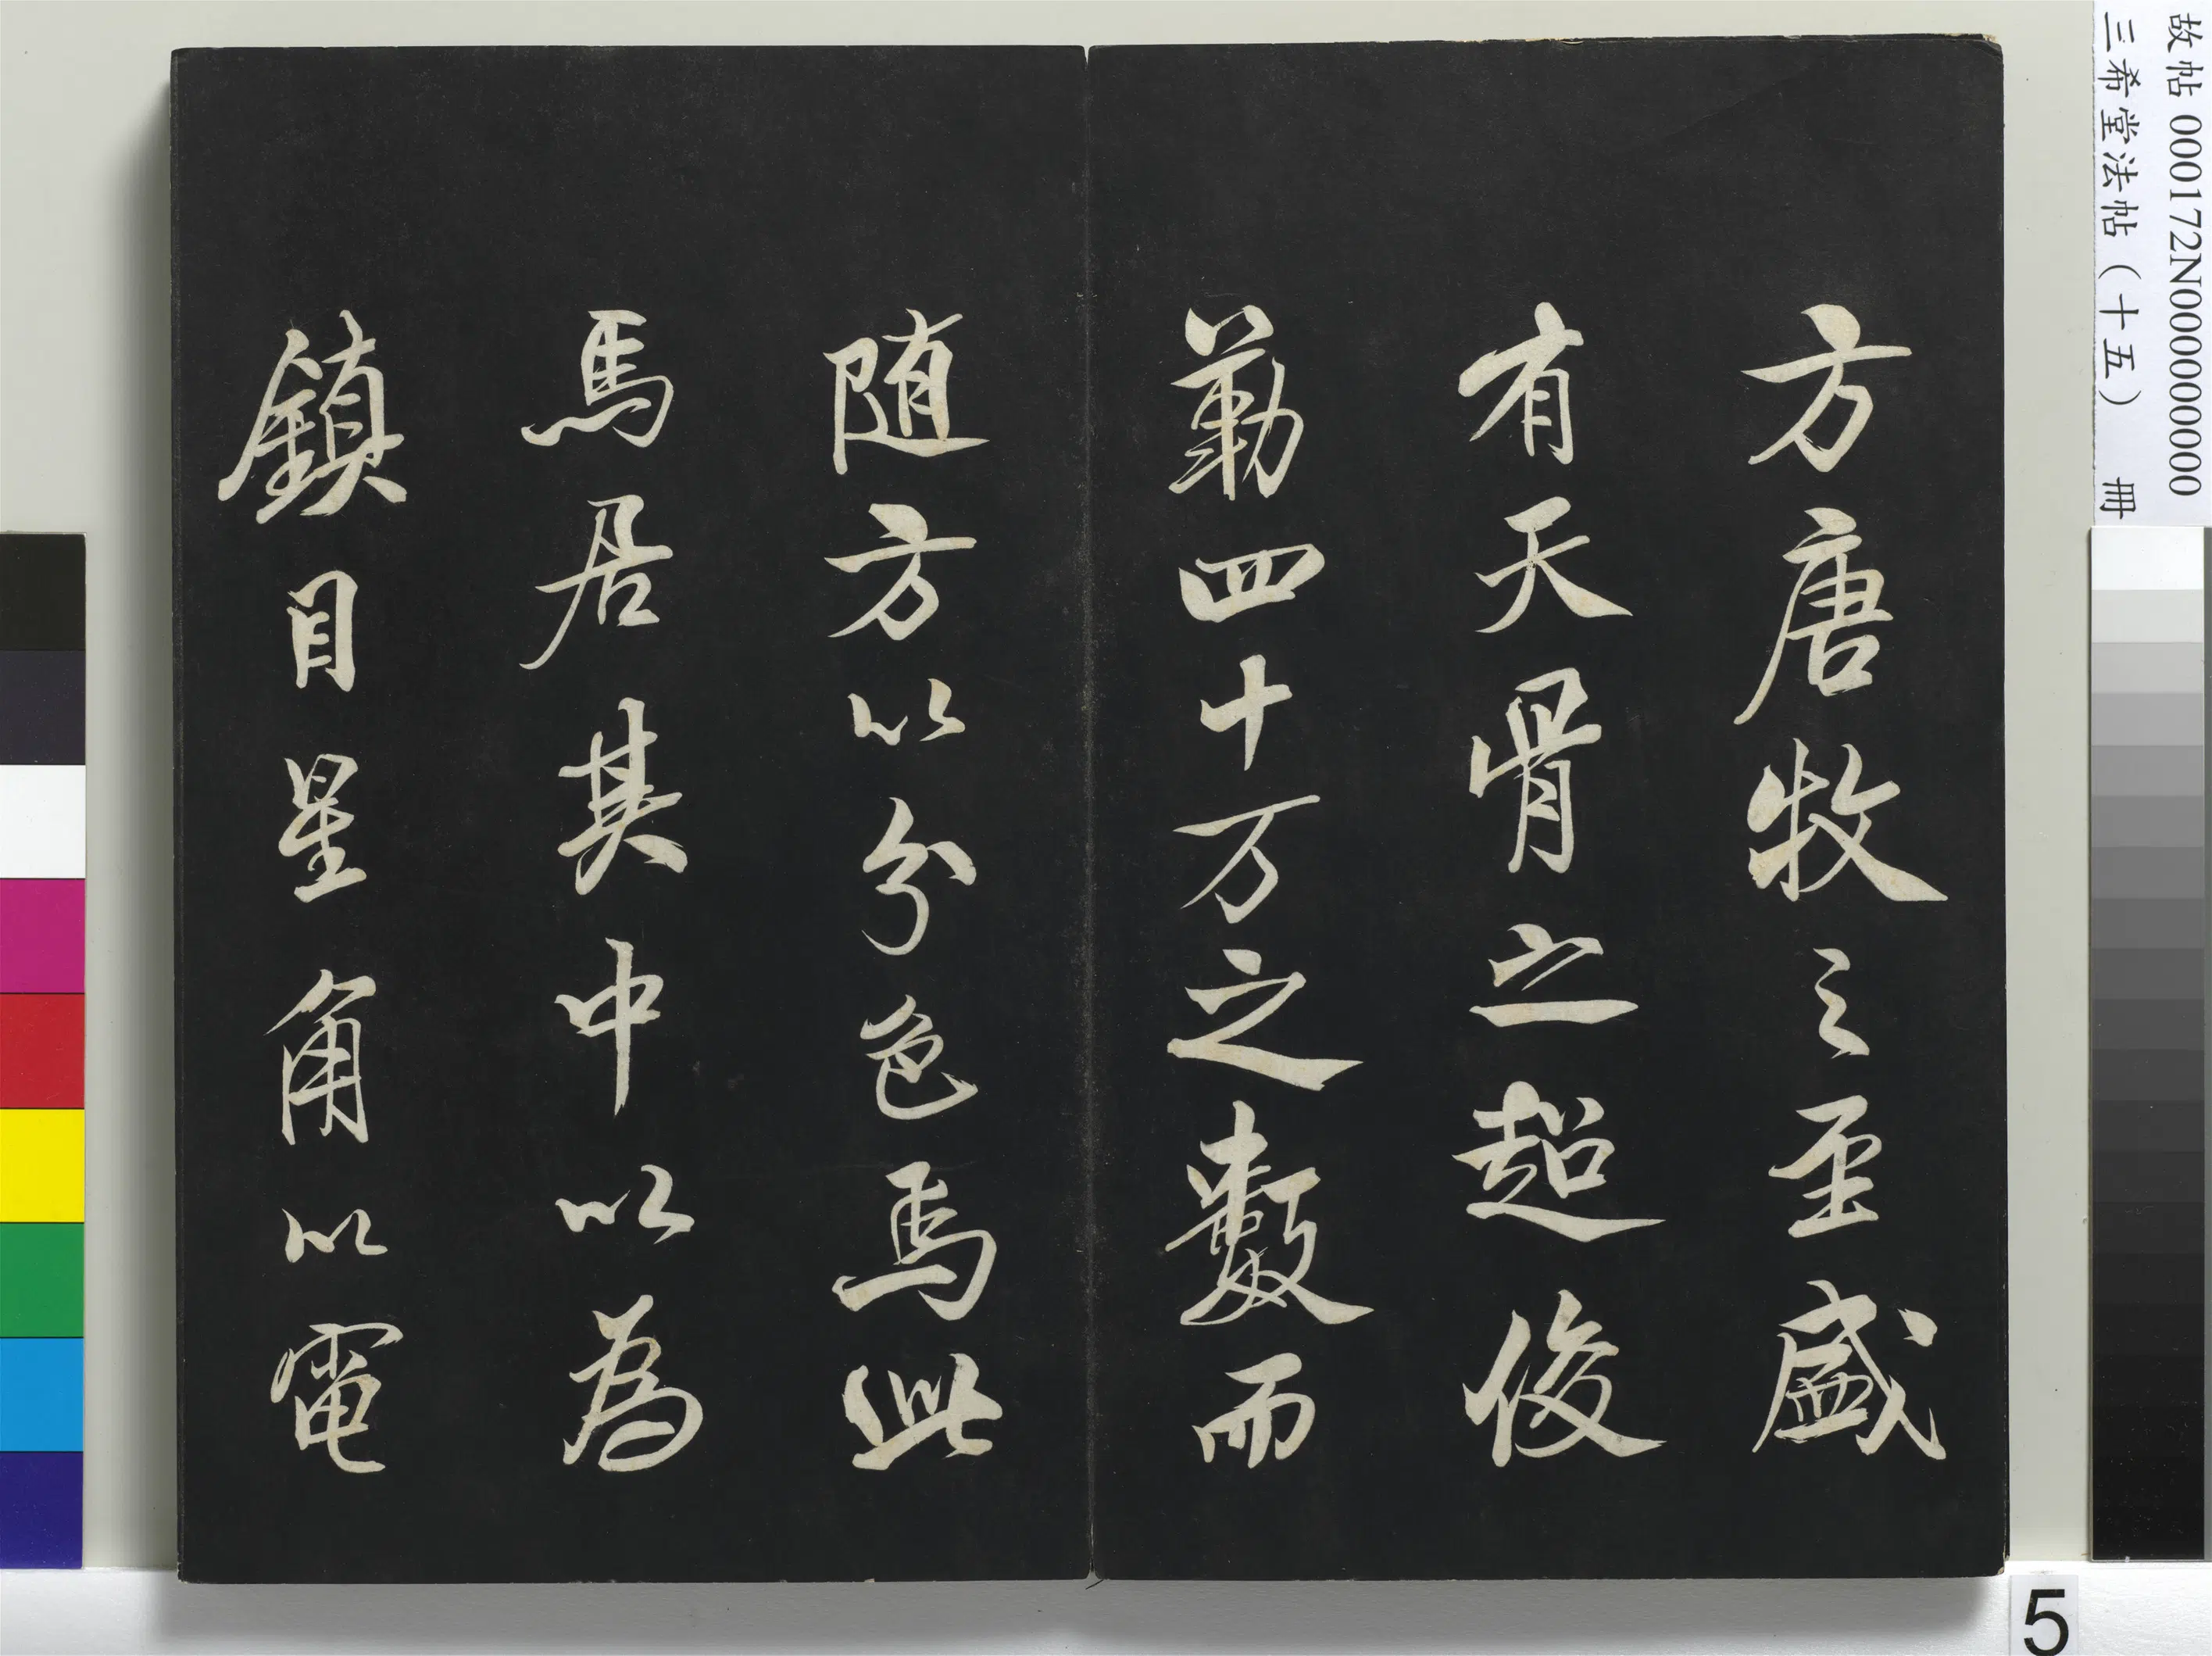 方唐牧之至盛
有天骨之超俊
勒四十万之數而
随方以分色焉此
馬居其中以為
鎮目星角以電
故帖 000172N000000000
三希堂法帖（十五） 冊
5